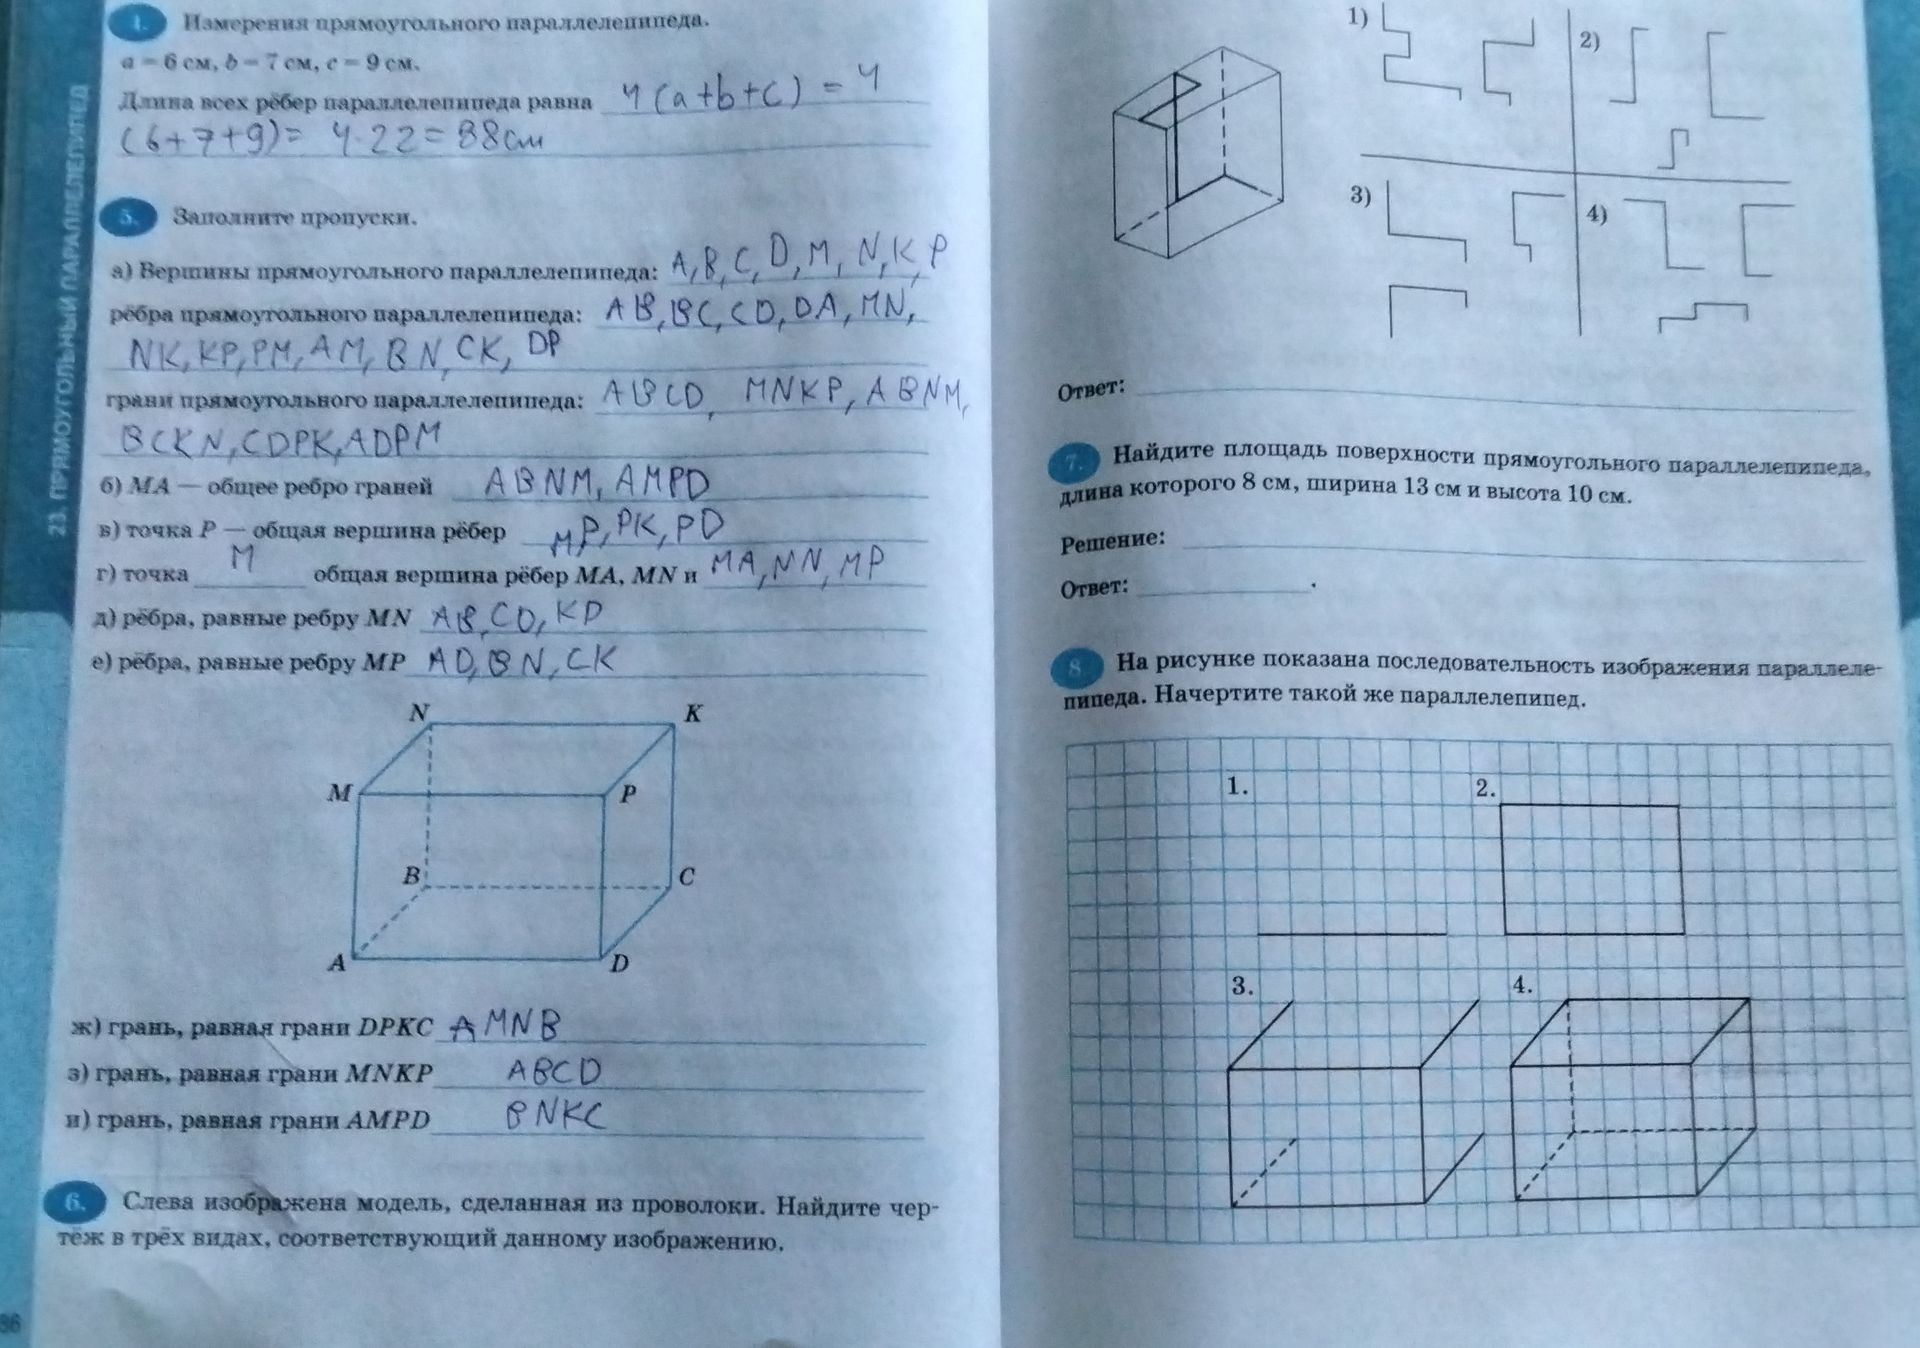 23. ПРЯМОУГОЛЬНЫЙ ПАРАЛЛЕЛЕПИПЕД
4. Измерения прямоугольного параллелепипеда.
a = 6 см, b = 7 см, c = 9 см.
Длина всех рёбер параллелепипеда равна 4(a+b+c) = 4
(6+7+9) = 4·22=88см
5. Заполните пропуски.
а) Вершины прямоугольного параллелепипеда: A, B, C, D, M, N, K, P
рёбра прямоугольного параллелепипеда: AB, BC, CD, DA, MN,
NK, KP, PM, AM, BN, CK, DP
грани прямоугольного параллелепипеда: ABCD, MNKP, ABNM,
BCKN, CDPK, ADPM
б) MA — общее ребро граней ABNM, AMPD
в) точка P — общая вершина рёбер MP, PK, PD
г) точка M общая вершина рёбер MA, MN и MA, NN, MP
д) рёбра, равные ребру MN AB, CD, KP
е) рёбра, равные ребру MP AD, BN, CK
N K
M P
B C
A D
ж) грань, равная грани DPKC AMNB
з) грань, равная грани MNKP ABCD
и) грань, равная грани AMPD BNKC
6. Слева изображена модель, сделанная из проволоки. Найдите чер-
тёж в трёх видах, соответствующий данному изображению.
86
1) 2)
3) 4)
Ответ:
7. Найдите площадь поверхности прямоугольного параллелепипеда,
длина которого 8 см, ширина 13 см и высота 10 см.
Решение:
Ответ: .
8. На рисунке показана последовательность изображения параллеле-
пипеда. Начертите такой же параллелепипед.
1. 2.
3. 4.